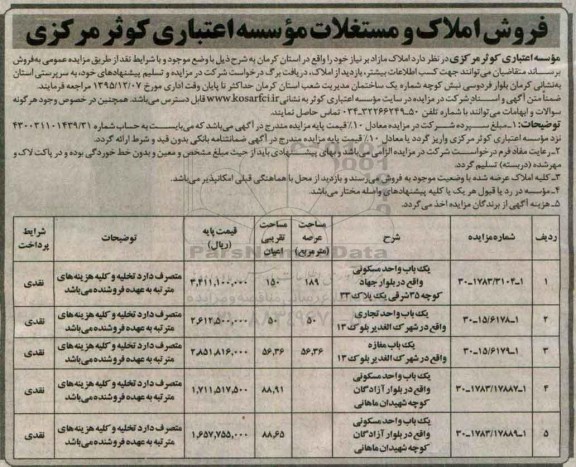 فروش املاک و مستغلات مؤسسه اعتباری کوثر مرکزی
مؤسسه اعتباری کوثر مرکزی در نظر دارد املاک مازاد بر نیاز خود را واقع در استان کرمان به شرح ذیل با وضع موجود و با شرایط نقد از طریق مزایده عمومی به فروش
برساند. متقاضیان می‌توانند جهت کسب اطلاعات بیشتر، بازدید از املاک، دریافت برگ درخواست شرکت در مزایده و تسلیم پیشنهادهای خود، به سرپرستی استان
به‌نشانی کرمان بلوار فردوسی نبش کوچه شماره یک ساختمان مدیریت شعب استان کرمان حداکثر تا پایان وقت اداری مورخ ۱۳۹۵/۱۲/۰۷ مراجعه فرمایند.
ضمناً متن آگهی و اسناد شرکت در مزایده در سایت مؤسسه اعتباری کوثر به نشانی www.kosarfci.ir قابل دسترس می‌باشد. همچنین در خصوص وجود هرگونه
سوالات و ابهامات می‌توانند با شماره تلفن ۵۰-۳۲۲۶۶۲۴۹-۰۳۴ تماس حاصل نمایند.
توضیحات: ۱ـ مبلغ سپرده شرکت در مزایده معادل ۱۰٪ قیمت پایه مزایده مندرج در آگهی می‌باشد که می‌بایست به حساب شماره ۴۳۰۰۳۱۱۰۱۴۳۹/۳۱
نزد مؤسسه اعتباری کوثر مرکزی واریز گردد یا معادل ۱۰٪ قیمت پایه مزایده مندرج در آگهی ضمانتنامه بانکی بدون قید و شرط ارائه گردد.
۲ـ رعایت مفاد فرم درخواست شرکت در مزایده الزامی می‌باشد و بهای پیشنهادی باید از حیث مبلغ مشخص و معین و بدون خط خوردگی بوده و در پاکت لاک و
مهر شده (دربسته) تسلیم گردد.
۳ـ کلیه املاک عرضه شده با وضعیت موجود به فروش می‌رسند و بازدید از محل با هماهنگی قبلی امکانپذیر می‌باشد.
۴ـ مؤسسه در رد یا قبول هر یک یا کلیه پیشنهادهای واصله مختار می‌باشد.
۵ـ هزینه آگهی از برندگان مزایده اخذ می‌گردد.
ردیف شماره مزایده شرح مساحت عرصه (مترمربع) مساحت تقریبی اعیان قیمت پایه (ریال) توضیحات شرایط پرداخت
۱ ۳۰-۱۷۸۳/۳۱۰۴-۱ یک باب واحد مسکونی واقع در بلوار جهاد کوچه ۳۵ شرقی پلاک ۳۳ ۱۸۹ ۱۵۰ ۳,۴۱۱,۱۰۰,۰۰۰ متصرف دارد تخلیه و کلیه هزینه‌های مترتبه به عهده فروشنده می‌باشد نقدی
۲ ۳۰-۱۵/۶۱۷۸-۱ یک باب واحد تجاری واقع در شهرک الغدیر بلوک ۱۳ ۵۰ ۵۰ ۲,۶۱۲,۵۰۰,۰۰۰ متصرف دارد تخلیه و کلیه هزینه‌های مترتبه به عهده فروشنده می‌باشد نقدی
۳ ۳۰-۱۵/۶۱۷۹-۱ یک باب مغازه واقع در شهرک الغدیر بلوک ۱۳ ۵۶,۳۶ ۵۶,۳۶ ۲,۸۵۱,۸۱۶,۰۰۰ متصرف دارد تخلیه و کلیه هزینه‌های مترتبه به عهده فروشنده می‌باشد نقدی
۴ ۳۰-۱۷۸۳/۱۷۸۸۷-۱ یک باب واحد مسکونی واقع در بلوار آزادگان کوچه شهیدان ماهانی ۸۸,۹۱ ۱,۷۱۱,۵۱۷,۵۰۰ متصرف دارد تخلیه و کلیه هزینه‌های مترتبه به عهده فروشنده می‌باشد نقدی
۵ ۳۰-۱۷۸۳/۱۷۸۸۹-۱ یک باب واحد مسکونی واقع در بلوار آزادگان کوچه شهیدان ماهانی ۸۸,۶۵ ۱,۶۵۷,۷۵۵,۰۰۰ متصرف دارد تخلیه و کلیه هزینه‌های مترتبه به عهده فروشنده می‌باشد نقدی